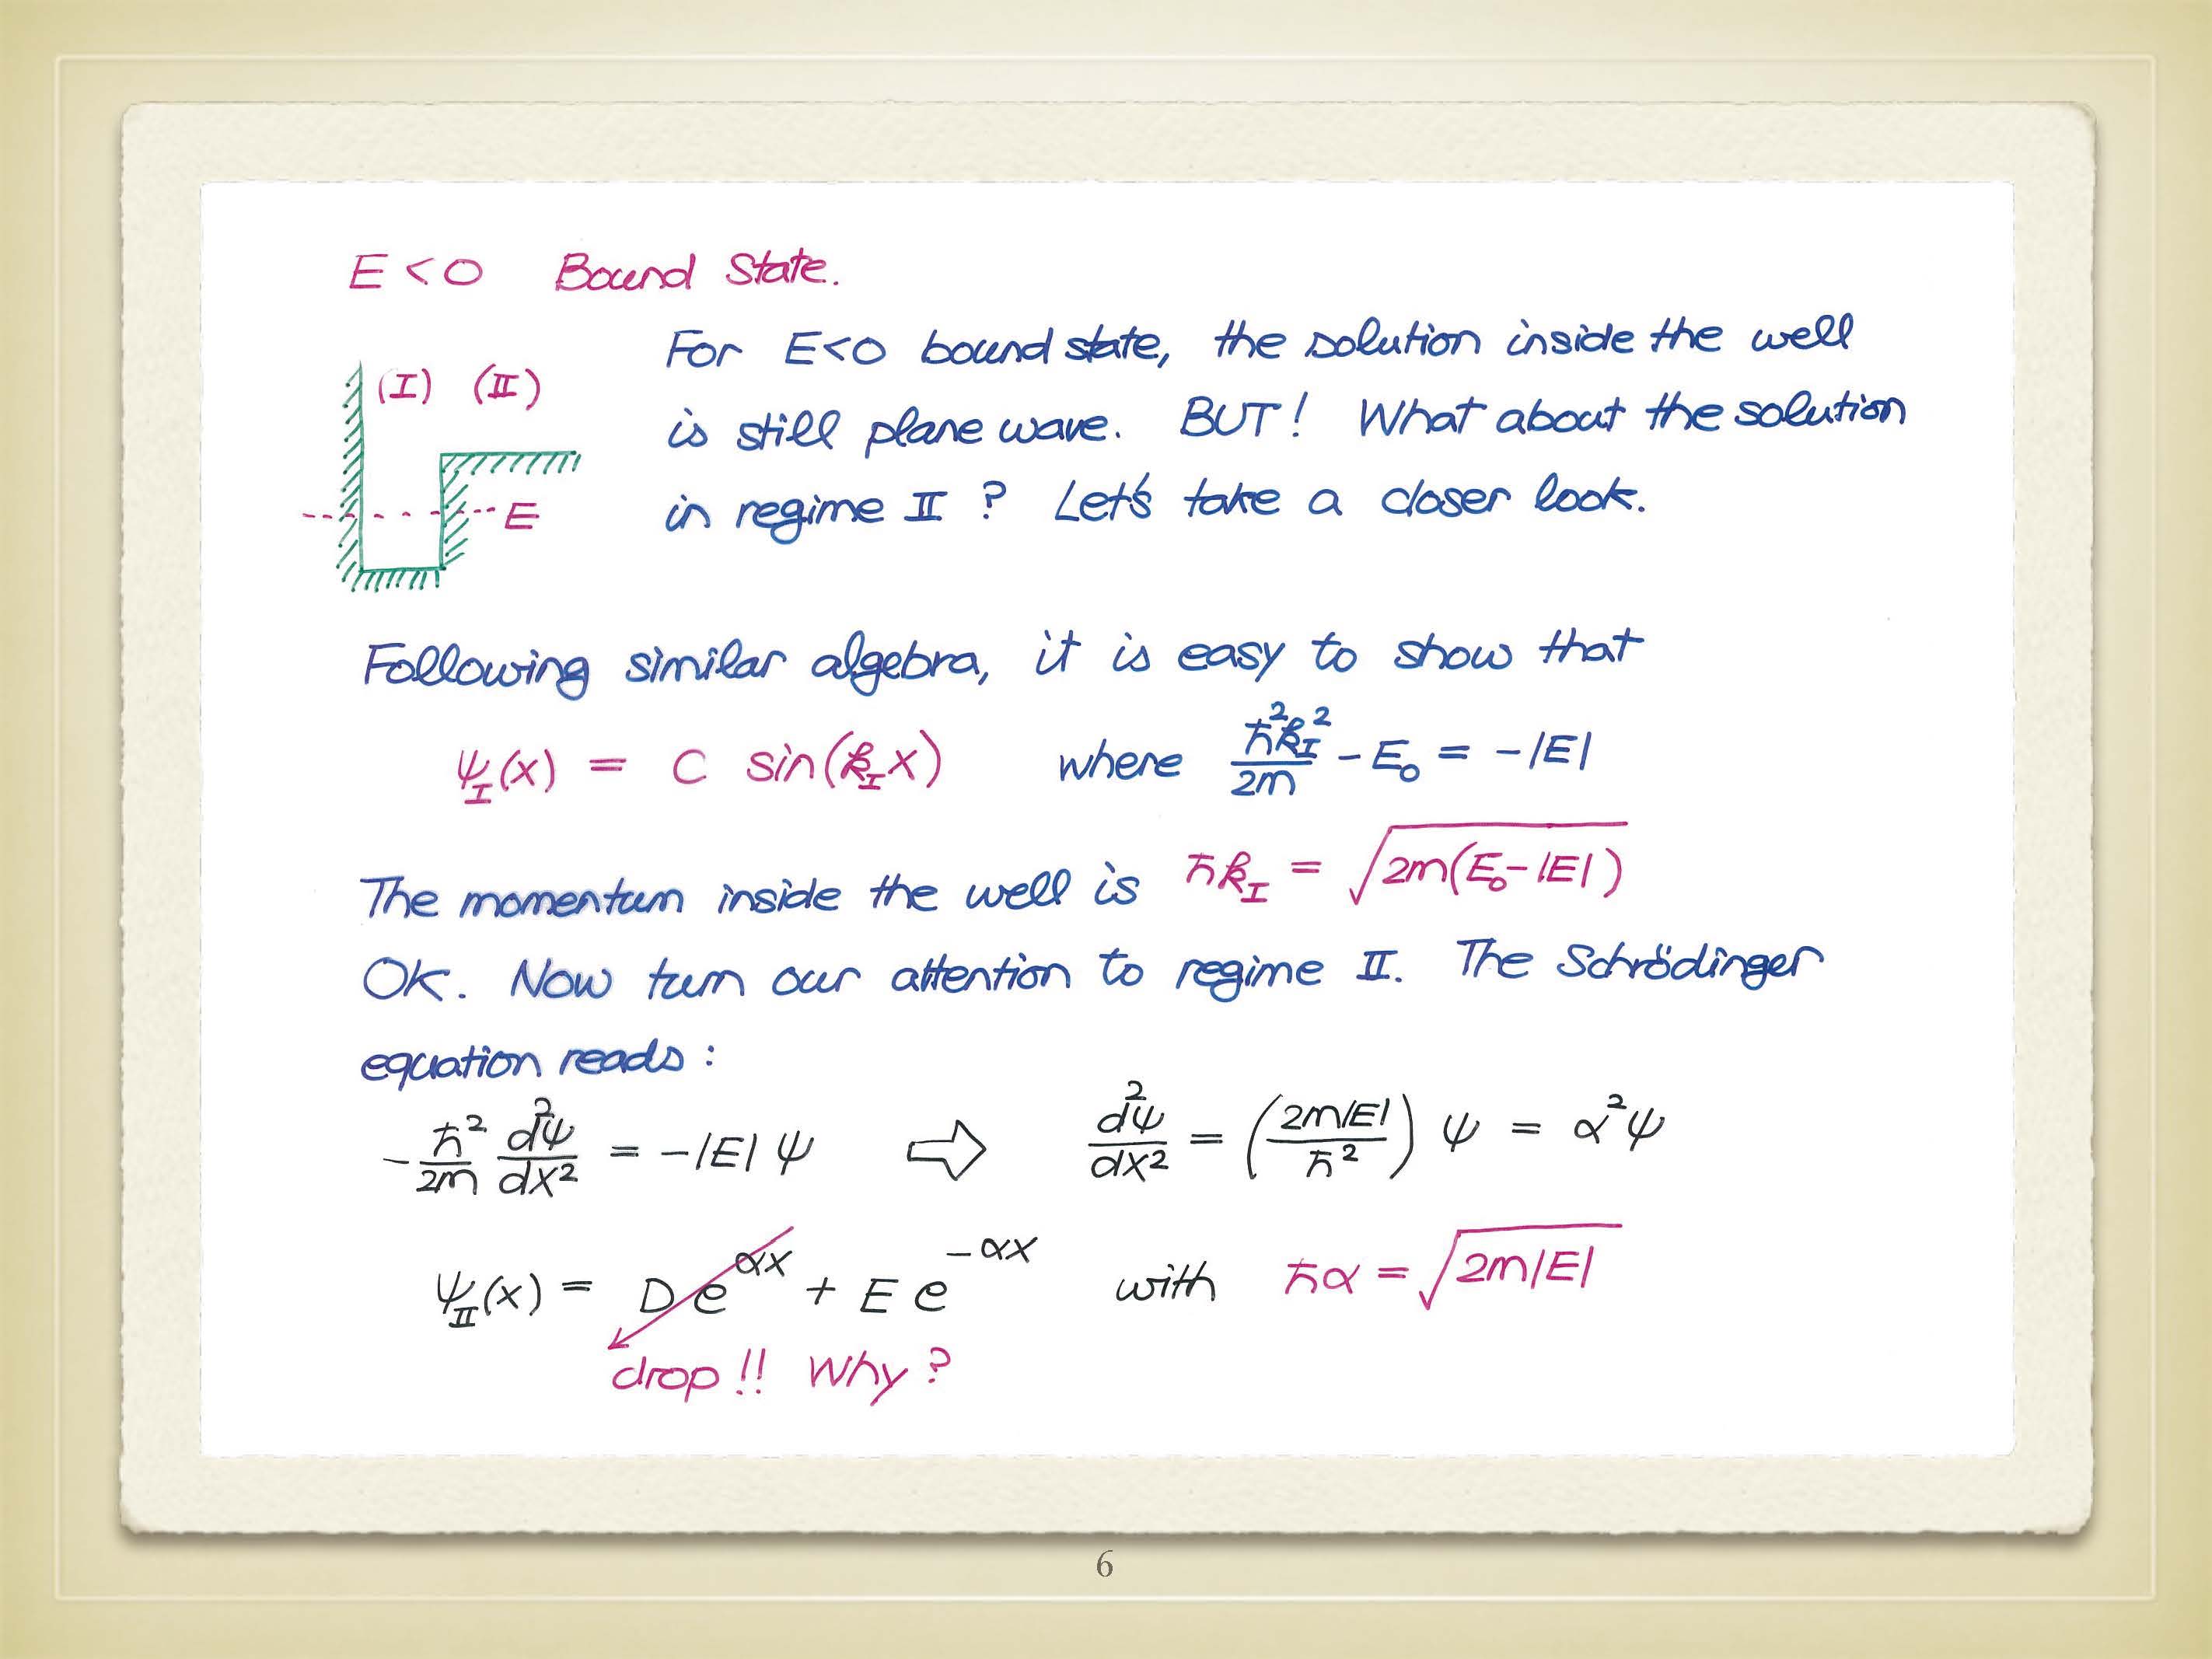 E < 0 Bound State.
(I) (II)
E
For E<0 bound state, the solution inside the well
is still plane wave. BUT! What about the solution
in regime II ? Let's take a closer look.
Following similar algebra, it is easy to show that
ψ_I(x) = C sin(k_I x) where ħ²k_I²/2m - E₀ = -|E|
The momentum inside the well is ħk_I = √(2m(E₀-|E|))
OK. Now turn our attention to regime II. The Schrödinger
equation reads :
-ħ²/2m d²ψ/dx² = -|E| ψ ⇨ d²ψ/dx² = (2m|E|/ħ²) ψ = α²ψ
ψ_II(x) = D e^{αx} + E e^{-αx} with ħα = √(2m|E|)
drop!! Why?
6